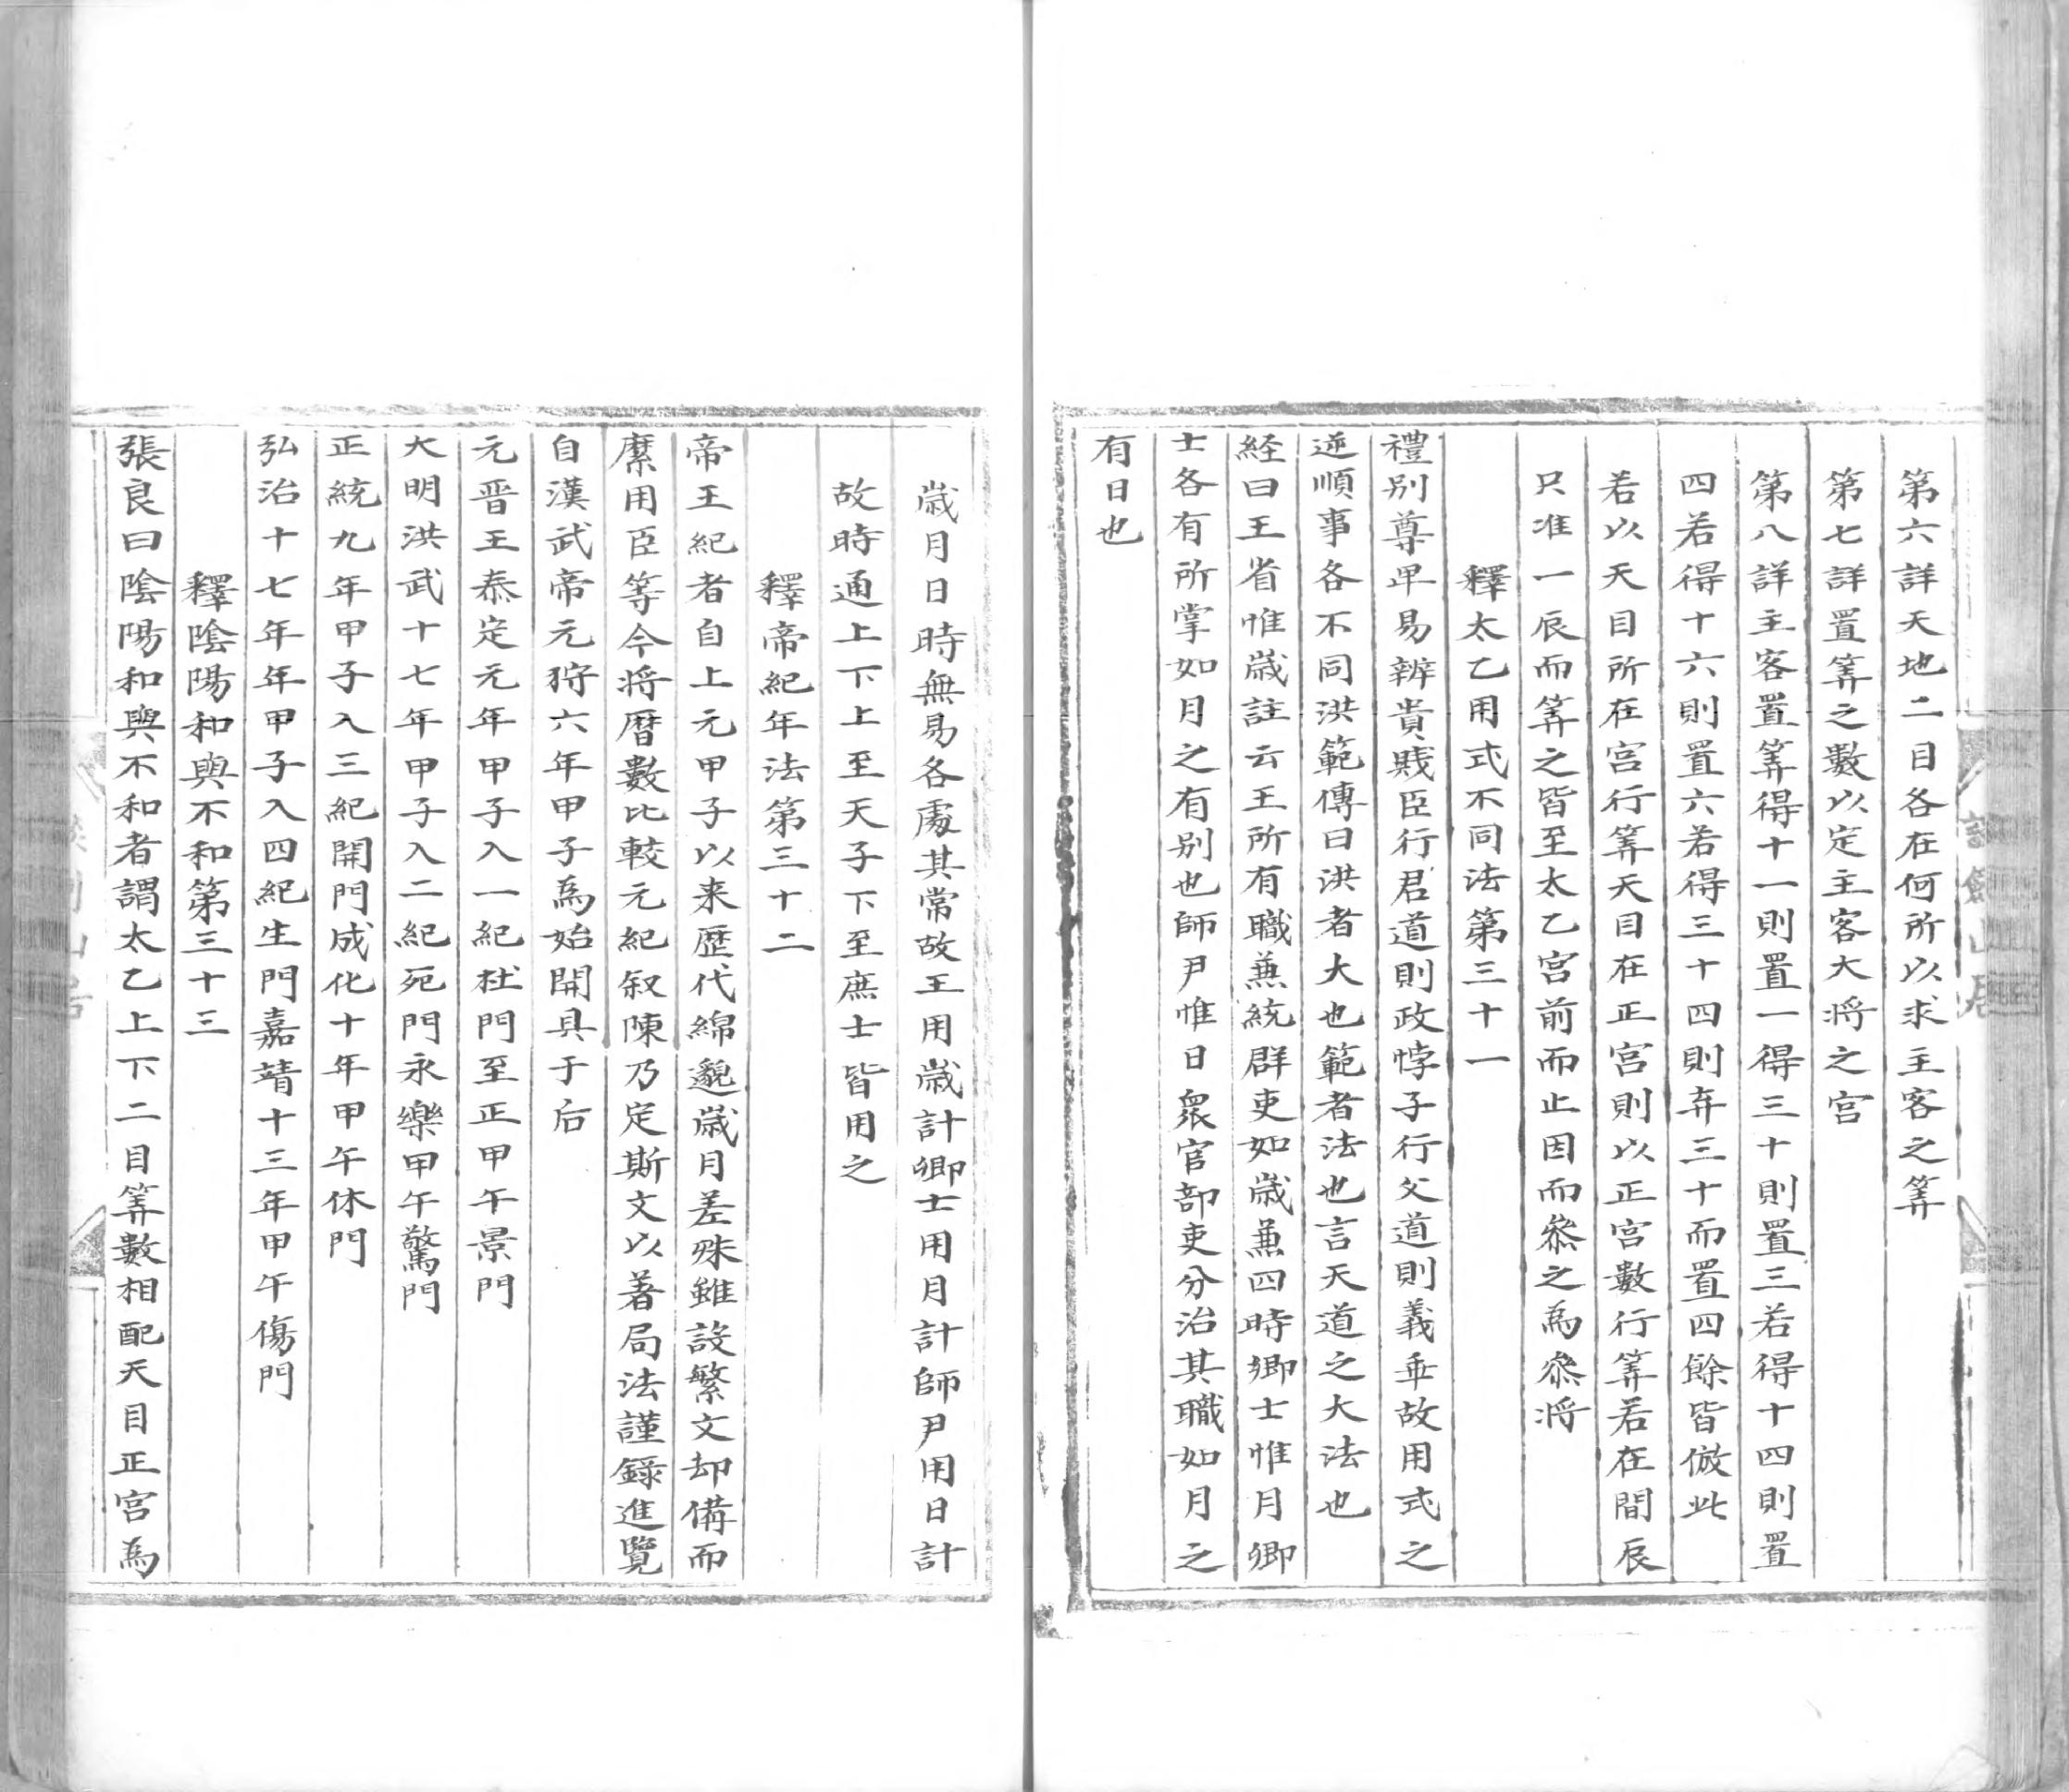 第六詳天地二目各在何所以求主客之筭
第七詳置筭之數以定主客大将之宫
第八詳主客置筭得十一則置一得三十則置三若得十四則置
四若得十六則置六若得三十四則弃三十而置四餘皆倣此
若以天目所在宫行筭天目在正宫則以正宫數行筭若在間辰
只准一辰而筭之皆至太乙宫前而止因而叅之為叅将
釋太乙用式不同法第三十一
禮别尊卑易辨貴賤臣行君道則政悖子行父道則義乖故用式之
逆順事各不同洪範傳曰洪者大也範者法也言天道之大法也
経曰王省惟歲註云王所有職兼統群吏如歲兼四時卿士惟月卿
士各有所掌如月之有别也師尹惟日衆官部吏分治其職如月之
有日也
歲月日時無易各處其常故王用歲計卿士用月計師尹用日計
故時通上下上至天子下至庶士皆用之
釋帝紀年法第三十二
帝王紀者自上元甲子以来歷代綿邈歲月差殊雖設繁文却備而
縻用臣等今将曆數比較元紀叙陳乃定斯文以著局法謹錄進覽
自漢武帝元狩六年甲子為始開具于后
元晋王泰定元年甲子入一紀杜門至正甲午景門
大明洪武十七年甲子入二紀死門永樂甲午驚門
正統九年甲子入三紀開門成化十年甲午休門
弘治十七年年甲子入四紀生門嘉靖十三年甲午傷門
釋陰陽和與不和第三十三
張良曰陰陽和與不和者謂太乙上下二目筭數相配天目正宫為